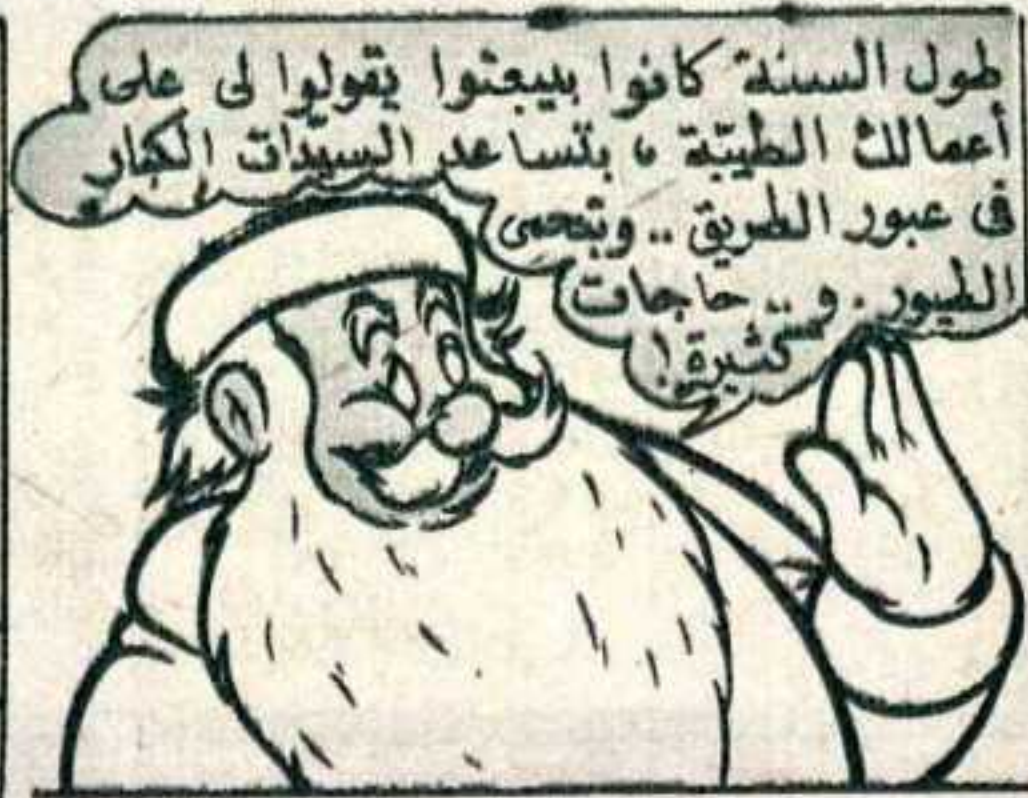 طول السنة كانوا بيبعتوا يقولوا لى على
أعمالك الطيبّة ، بتساعد السيدّات الكبار
فى عبور الطريق .. وبتحمى
الطيور . و .. حاجات
كثيرة !